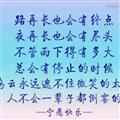 路再长也会有终点
夜再长也会有尽头
不管雨下得有多大
总会有停止的时候
乌云永远遮不住微笑的太
人不会一辈子都倒霉的
——宁愿快乐——